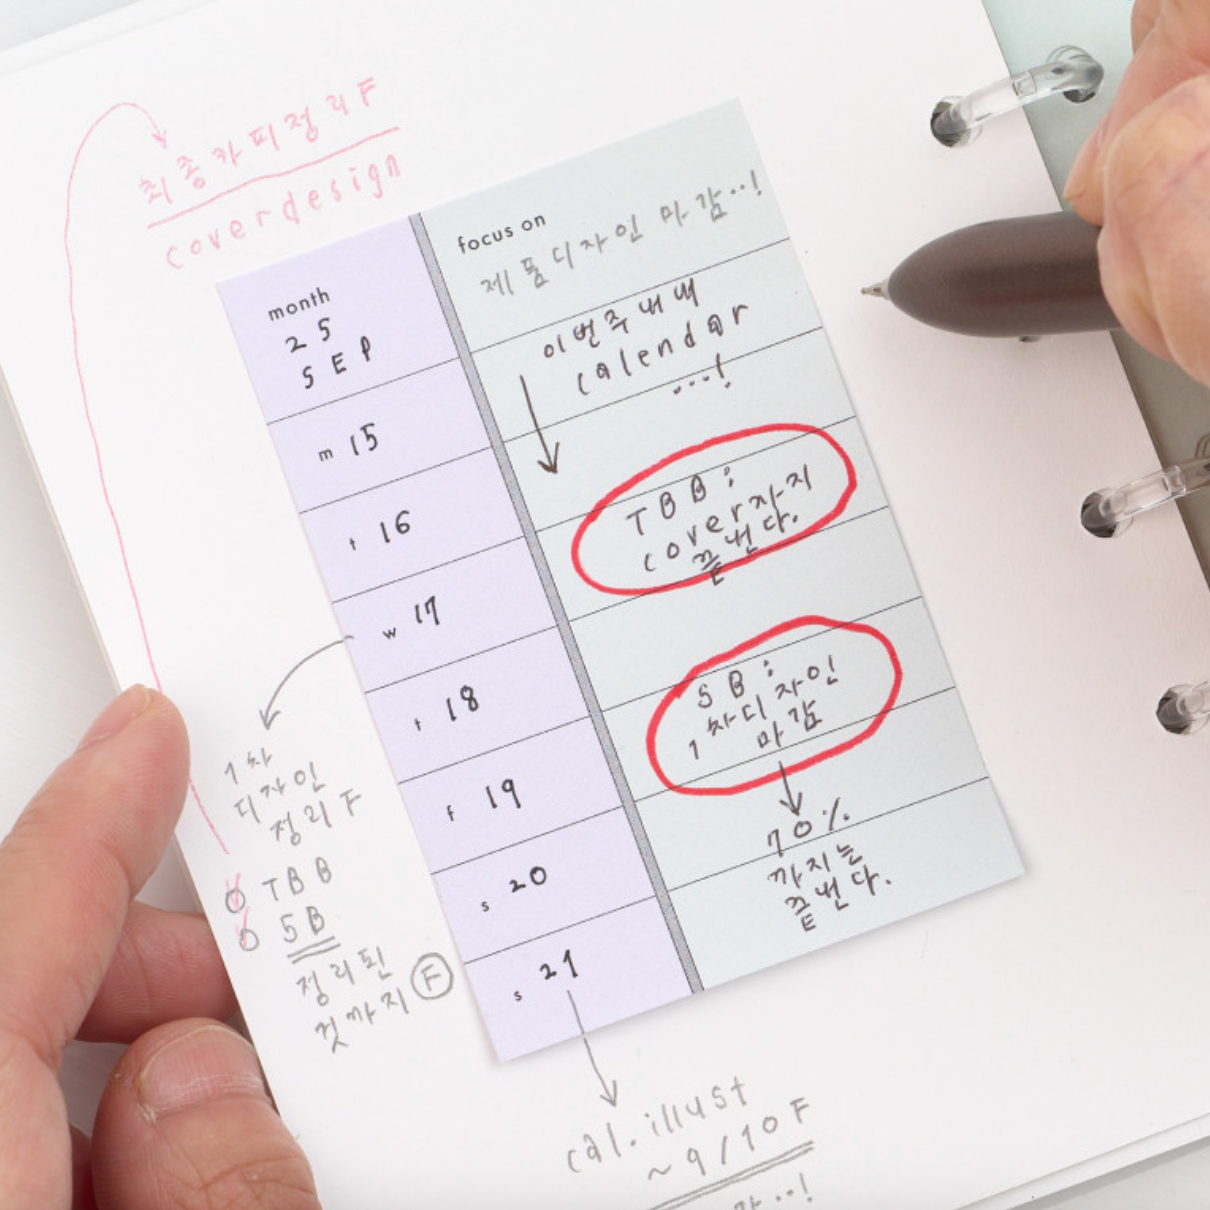 최종카피정리F
coverdesign
month
25
SEP
focus on
제품디자인 마감..!
이번주내내
calendar
...!
m 15
t 16
w 17
t 18
f 19
s 20
s 21
TBB:
cover까지
끝낸다.
SB:
1차디자인
마감
70%
까지는
끝낸다.
1차
디자인
정리F
TBB
SB
정리된
것까지 F
cal.illust
~9/10F